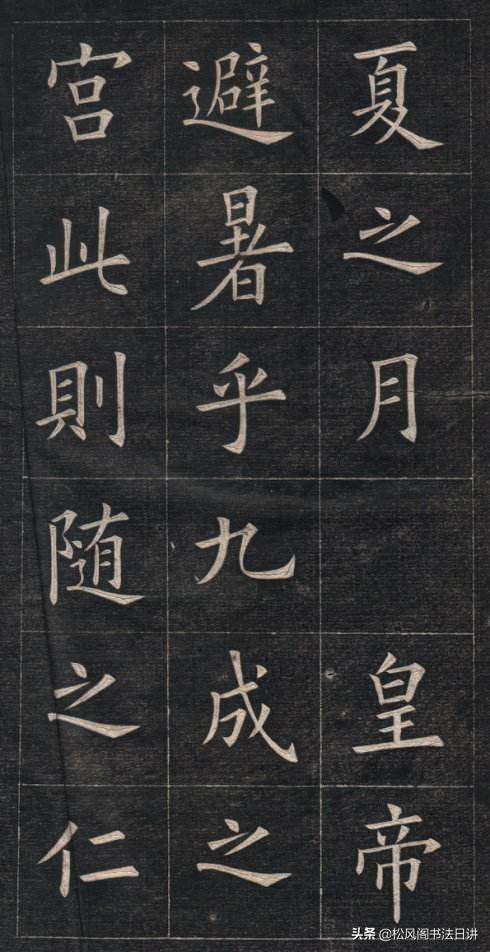 夏之月 皇帝
避暑乎九成之
宮此則随之仁
头条 @松风阁书法日讲